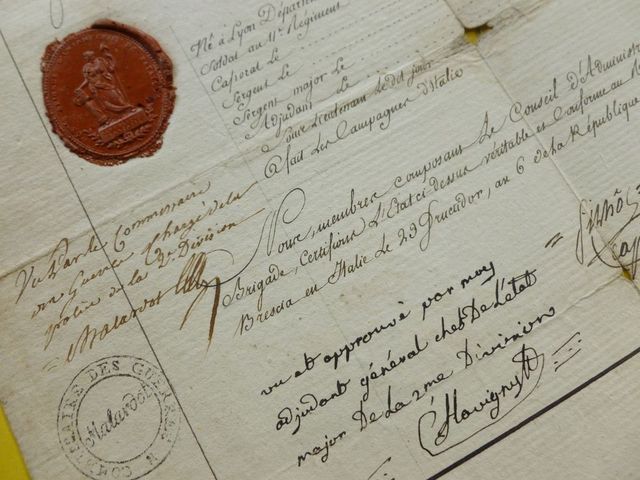 Né à Lyon Départem
Soldat au 11e Régiment
Caporal Le
Sergent Le
Sergent major Le
Adjudant Le
Sous Lieutenant Le dit jour
a fait Les Campagnes d'Italie
Nous, membres composans Le Conseil d'Administr
Brigade, certifions L'Etat ci dessus véritable et Conforme au R
Brescia en Italie Le 29 Fructidor, an 6 de la République
Vu Par le Commissaire
des Guerres chargé de la
police de la 2e Division
Malardot
COMMISSAIRE DES GUERRES
Malardot
vu et approuvé par moy
adjudant général chef De L'état
major De La 2me Division